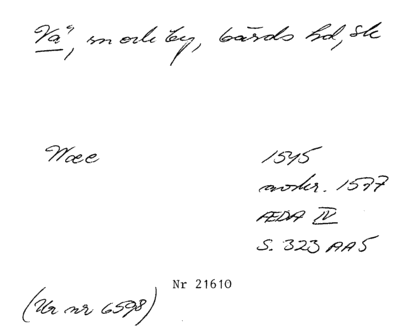 Vä, sn och by, Gärds hd, Sk
Wæe 1545
avskr. 1577
ÆDA IV
S. 323 AA5
Nr 21610
(Ur nr 6598)